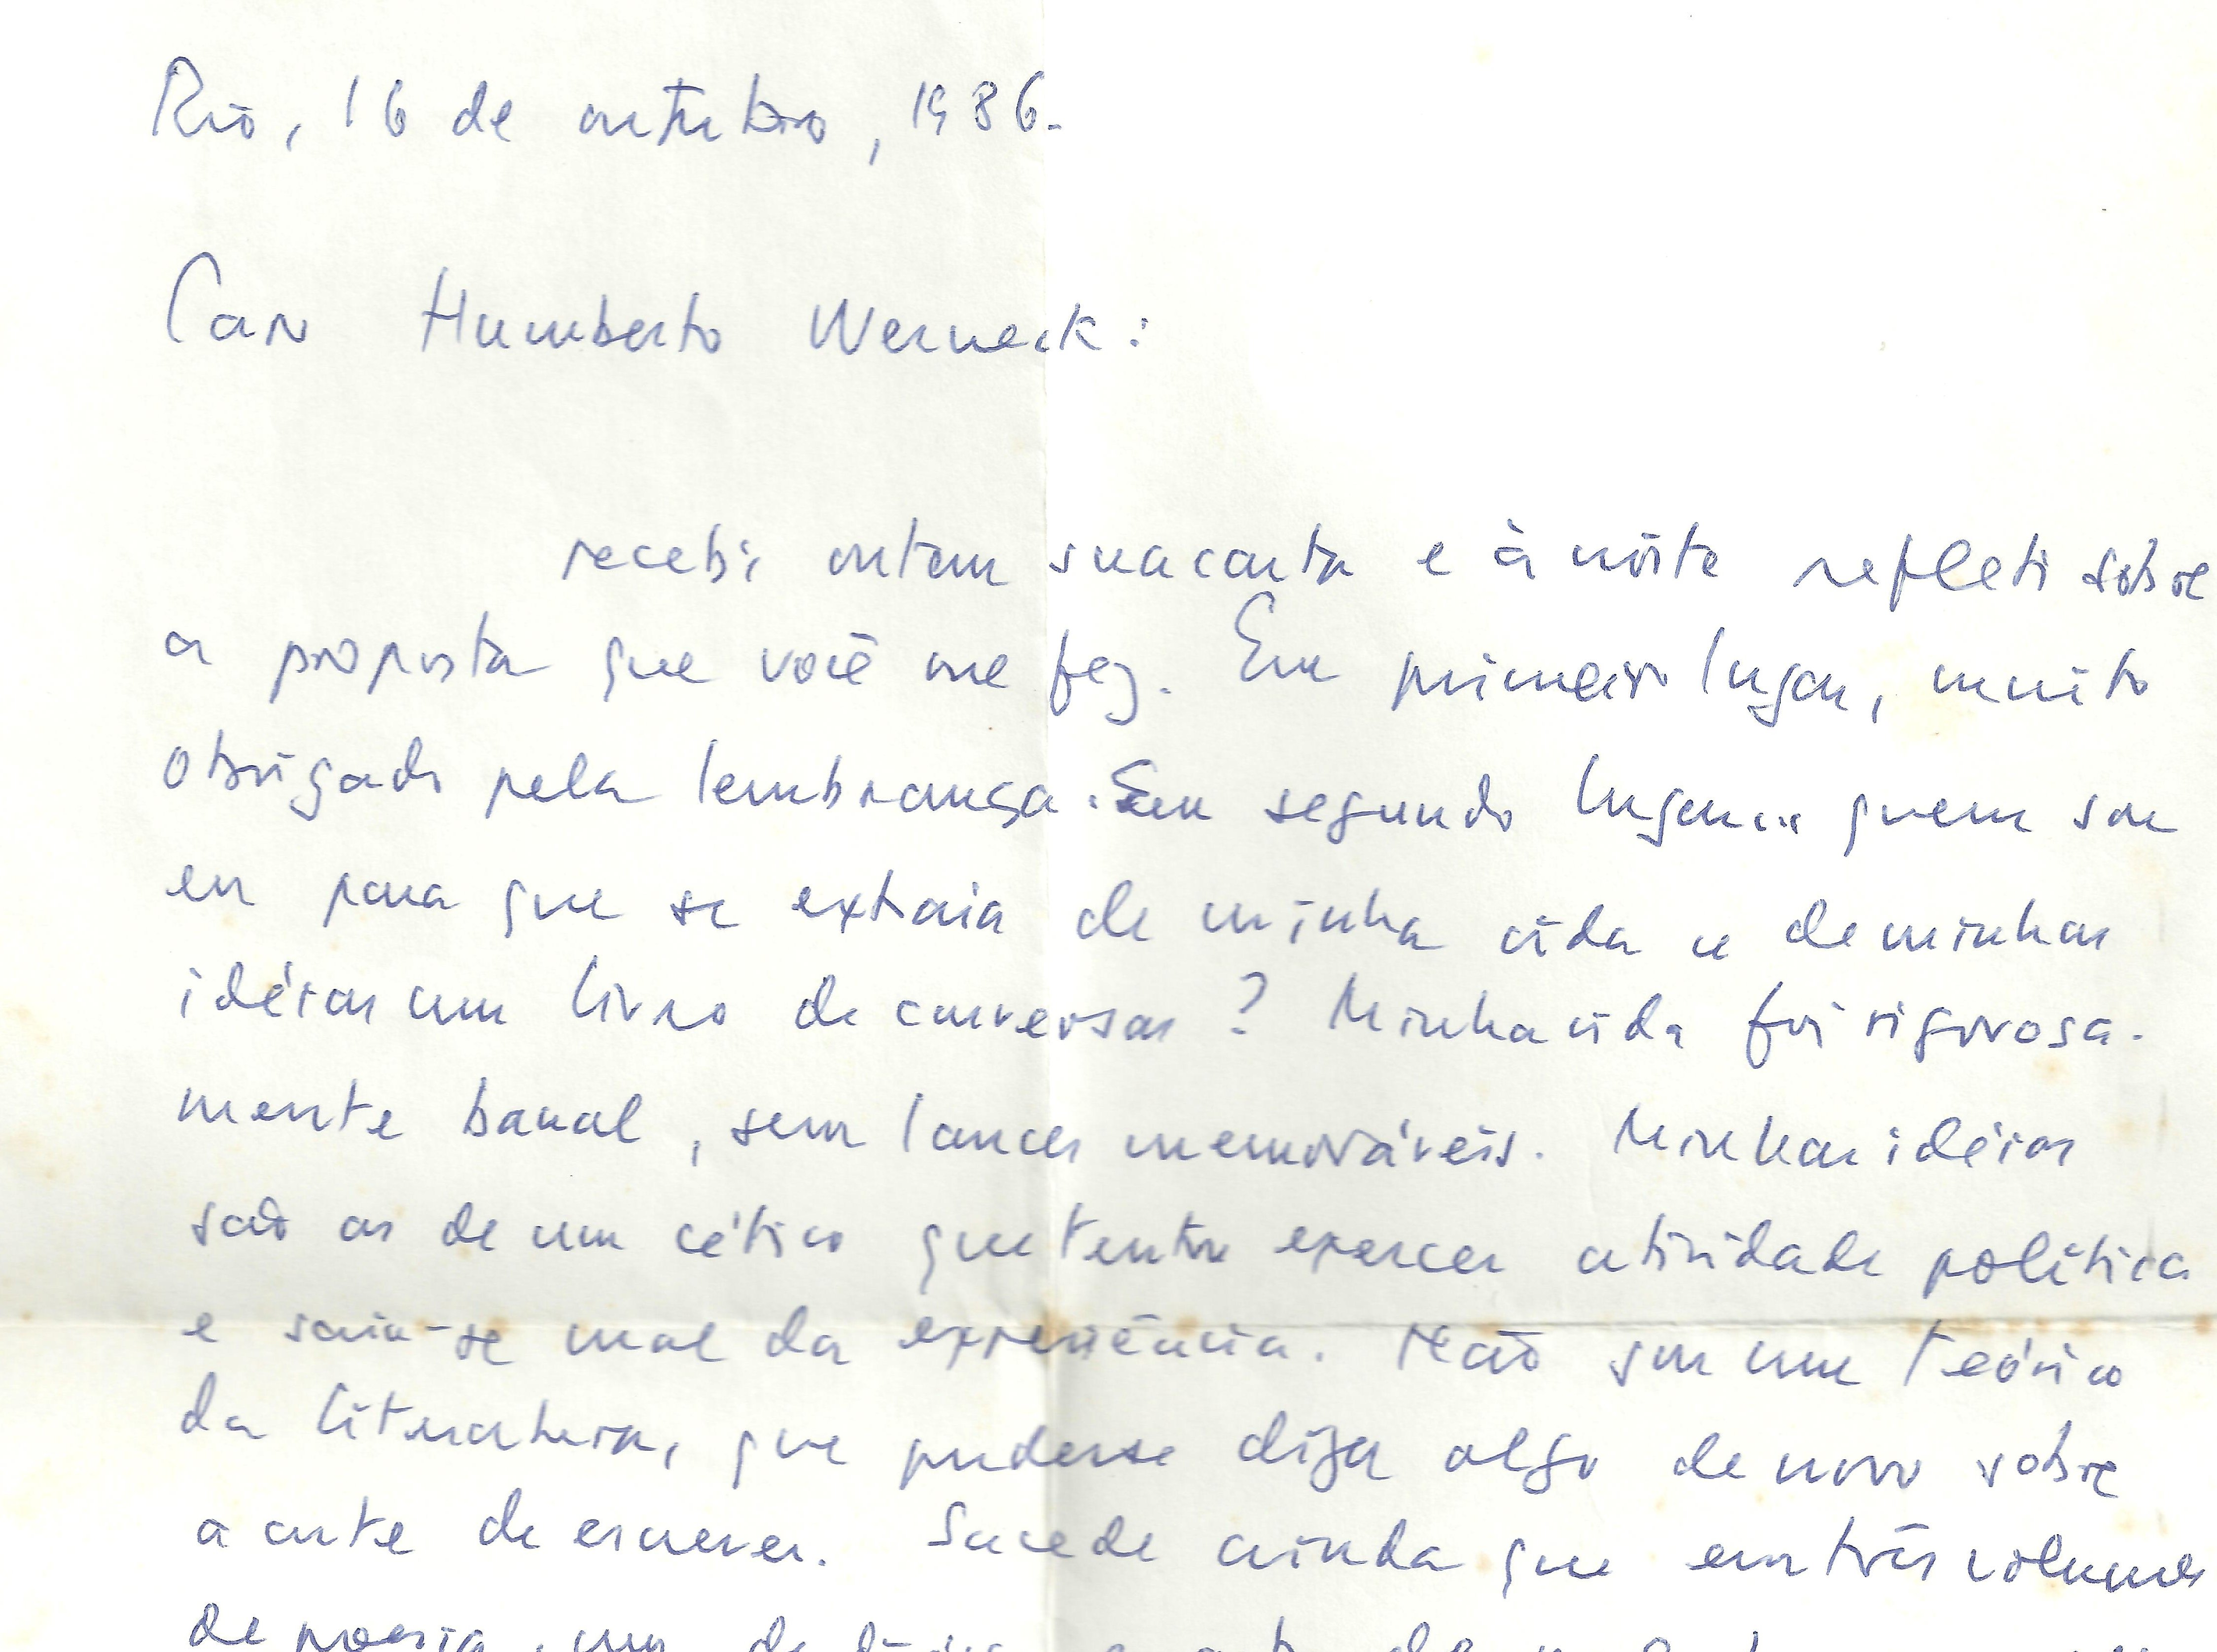 Rio, 16 de outubro, 1986.
Caro Humberto Werneck:
recebi ontem sua carta e à noite refleti sobre
a proposta que você me fez. Em primeiro lugar, muito
obrigado pela lembrança. Em segundo lugar... quem sou
eu para que se extraia de minha vida e de minhas
idéias um livro de conversas? Minha vida foi rigorosa-
mente banal, sem lances memoráveis. Minhas idéias
são as de um cético que tentou exercer atividade política
e saiu-se mal da experiência. Não sou um teórico
da literatura, que pudesse dizer algo de novo sobre
a arte de escrever. Sucede ainda que em três volumes
de poesia, um de